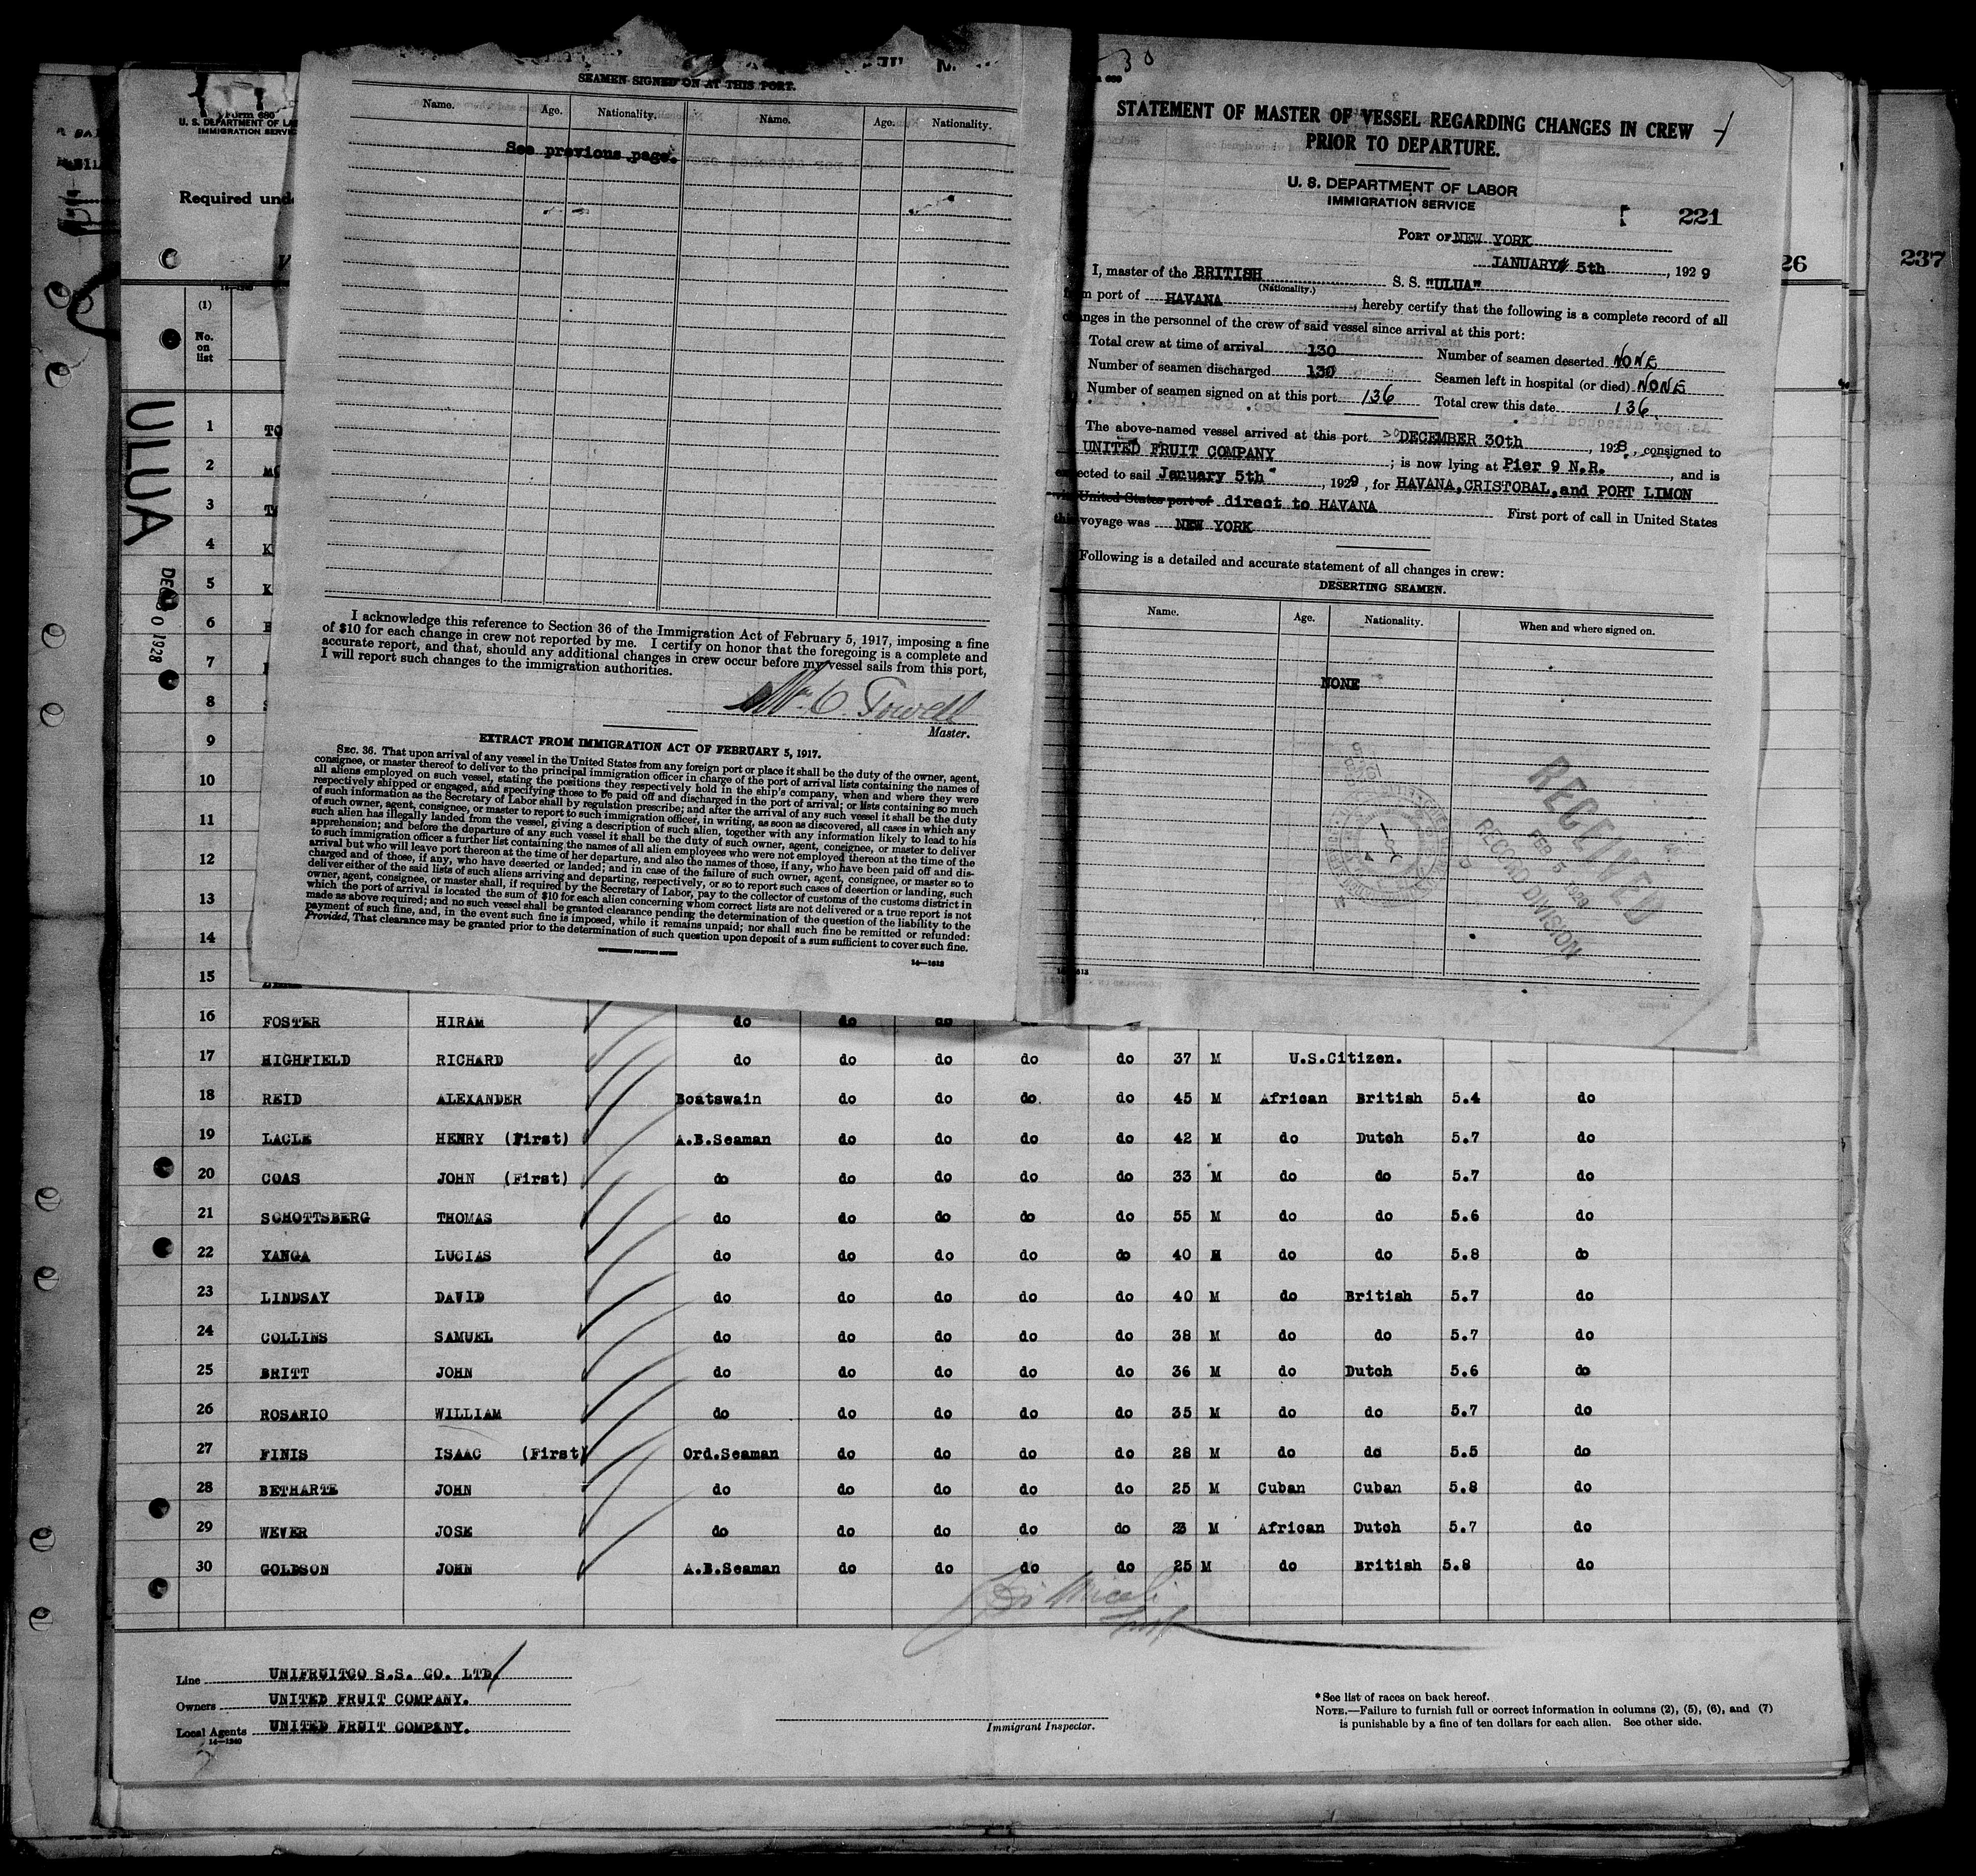 SEAMEN SIGNED ON AT THIS PORT.
Name. Age. Nationality. Name. Age. Nationality.
See previous page.
I acknowledge this reference to Section 36 of the Immigration Act of February 5, 1917, imposing a fine
of $10 for each change in crew not reported by me. I certify on honor that the foregoing is a complete and
accurate report, and that, should any additional changes in crew occur before my vessel sails from this port,
I will report such changes to the immigration authorities.
Master.
EXTRACT FROM IMMIGRATION ACT OF FEBRUARY 5, 1917.
SEC. 36. That upon arrival of any vessel in the United States from any foreign port or place it shall be the duty of the owner, agent,
consignee, or master thereof to deliver to the principal immigration officer in charge of the port of arrival lists containing the names of
all aliens employed on such vessel, stating the positions they respectively hold in the ship's company, when and where they were
respectively shipped or engaged, and specifying those to be paid off and discharged in the port of arrival; or lists containing so much
of such information as the Secretary of Labor shall by regulation prescribe; and after the arrival of any such vessel it shall be the duty
of such owner, agent, consignee, or master to report to such immigration officer, in writing, as soon as discovered, all cases in which any
such alien has illegally landed from the vessel, giving a description of such alien, together with any information likely to lead to his
apprehension; and before the departure of any such vessel it shall be the duty of such owner, agent, consignee, or master to deliver
to such immigration officer a further list containing the names of all alien employees who were not employed thereon at the time of the
arrival but who will leave port thereon at the time of her departure, and also the names of those, if any, who have been paid off and dis-
charged and of those, if any, who have deserted or landed; and in case of the failure of such owner, agent, consignee, or master so to
deliver either of the said lists of such aliens arriving and departing, respectively, or so to report such cases of desertion or landing, such
owner, agent, consignee, or master shall, if required by the Secretary of Labor, pay to the collector of customs of the customs district in
which the port of arrival is located the sum of $10 for each alien concerning whom correct lists are not delivered or a true report is not
made as above required; and no such vessel shall be granted clearance pending the determination of the question of the liability to the
payment of such fine, and, in the event such fine is imposed, while it remains unpaid; nor shall such fine be remitted or refunded:
Provided, That clearance may be granted prior to the determination of such question upon deposit of a sum sufficient to cover such fine.
GOVERNMENT PRINTING OFFICE
30
STATEMENT OF MASTER OF VESSEL REGARDING CHANGES IN CREW
PRIOR TO DEPARTURE.
U. S. DEPARTMENT OF LABOR
IMMIGRATION SERVICE
221
PORT OF NEW YORK
JANUARY 5th, 1929
I, master of the BRITISH S. S. "ULUA"
(Nationality.)
port of HAVANA, hereby certify that the following is a complete record of all
in the personnel of the crew of said vessel since arrival at this port:
Total crew at time of arrival 130 Number of seamen deserted NONE
Number of seamen discharged 130 Seamen left in hospital (or died) NONE
Number of seamen signed on at this port 136 Total crew this date 136
The above-named vessel arrived at this port DECEMBER 30th, 1928, consigned to
UNITED FRUIT COMPANY; is now lying at Pier 9 N.R., and is
to sail January 5th, 1929, for HAVANA, CRISTOBAL, and PORT LIMON
United States port of direct to HAVANA First port of call in United States
voyage was NEW YORK
Following is a detailed and accurate statement of all changes in crew:
DESERTING SEAMEN.
Name. Age. Nationality. When and where signed on.
NONE
RECEIVED
FEB 5 1929
RECORD DIVISION
Form 680
U. S. DEPARTMENT OF
IMMIGRATION
Required
26
237
(1)
No.
on
list
ULUA
1928
1
2
3
4
5
6
7
8
9
10
11
12
13
14
15
16 FOSTER HIRAM do do do
17 HIGHFIELD RICHARD do do do do do 37 M U.S.Citizen.
18 REID ALEXANDER Boatswain do do do do 45 M African British 5.4 do
19 LACLE HENRY (First) A.B.Seaman do do do do 42 M do Dutch 5.7 do
20 COAS JOHN (First) do do do do do 33 M do do 5.7 do
21 SCHOTTSBERG THOMAS do do do do do 55 M do do 5.6 do
22 YANGA LUCIAS do do do do do 40 M do do 5.8 do
23 LINDSAY DAVID do do do do do 40 M do British 5.7 do
24 COLLINS SAMUEL do do do do do 38 M do do 5.7 do
25 BRITT JOHN do do do do do 36 M do Dutch 5.6 do
26 ROSARIO WILLIAM do do do do do 35 M do do 5.7 do
27 FINIS ISAAC (First) Ord.Seaman do do do do 28 M do do 5.5 do
28 BETHARTE JOHN do do do do do 25 M Cuban Cuban 5.8 do
29 WEVER JOSE do do do do do 23 M African Dutch 5.7 do
30 GOLDSON JOHN A.B.Seaman do do do do 25 M do British 5.8 do
Line UNIFRUITCO S.S. CO. LTD.
Owners UNITED FRUIT COMPANY.
Local Agents UNITED FRUIT COMPANY.
14—1240
Immigrant Inspector.
*See list of races on back hereof.
NOTE.—Failure to furnish full or correct information in columns (2), (5), (6), and (7)
is punishable by a fine of ten dollars for each alien. See other side.